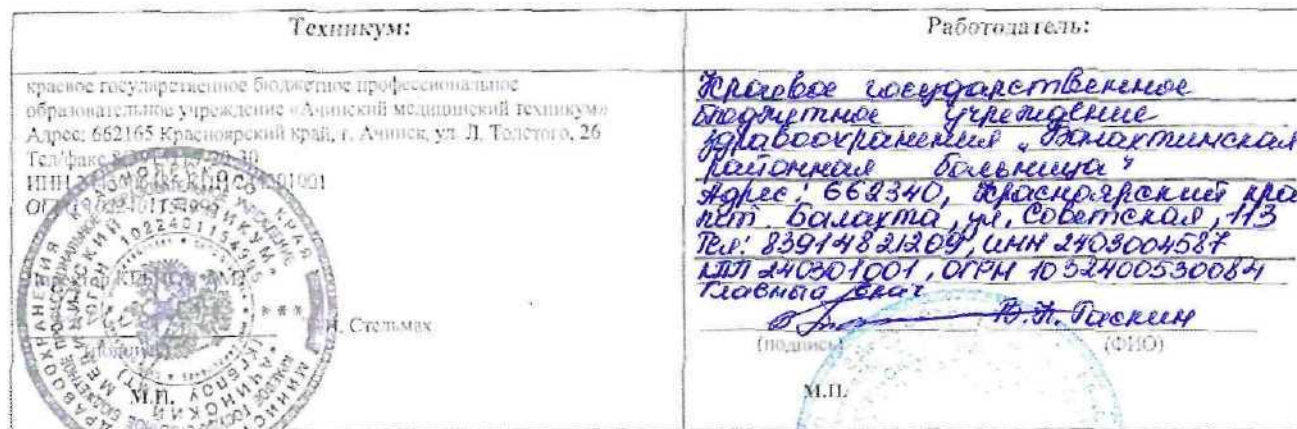 Техникум:
краевое государственное бюджетное профессиональное
образовательное учреждение «Ачинский медицинский техникум»
Адрес: 662165 Красноярский край, г. Ачинск, ул. Л. Толстого, 26
Тел/факс
ИНН
Стельмах
М.П.
Работодатель:
Краевое государственное
бюджетное учреждение
здравоохранения „Балахтинская
районная больница"
Адрес: 662340, Красноярский кра
пгт. Балахта, ул. Советская, 113
Тел: 83914821209, ИНН 2403004587
КПП 240301001, ОГРН 1032400530084
Главный врач
(подпись) (ФИО)
М.П.